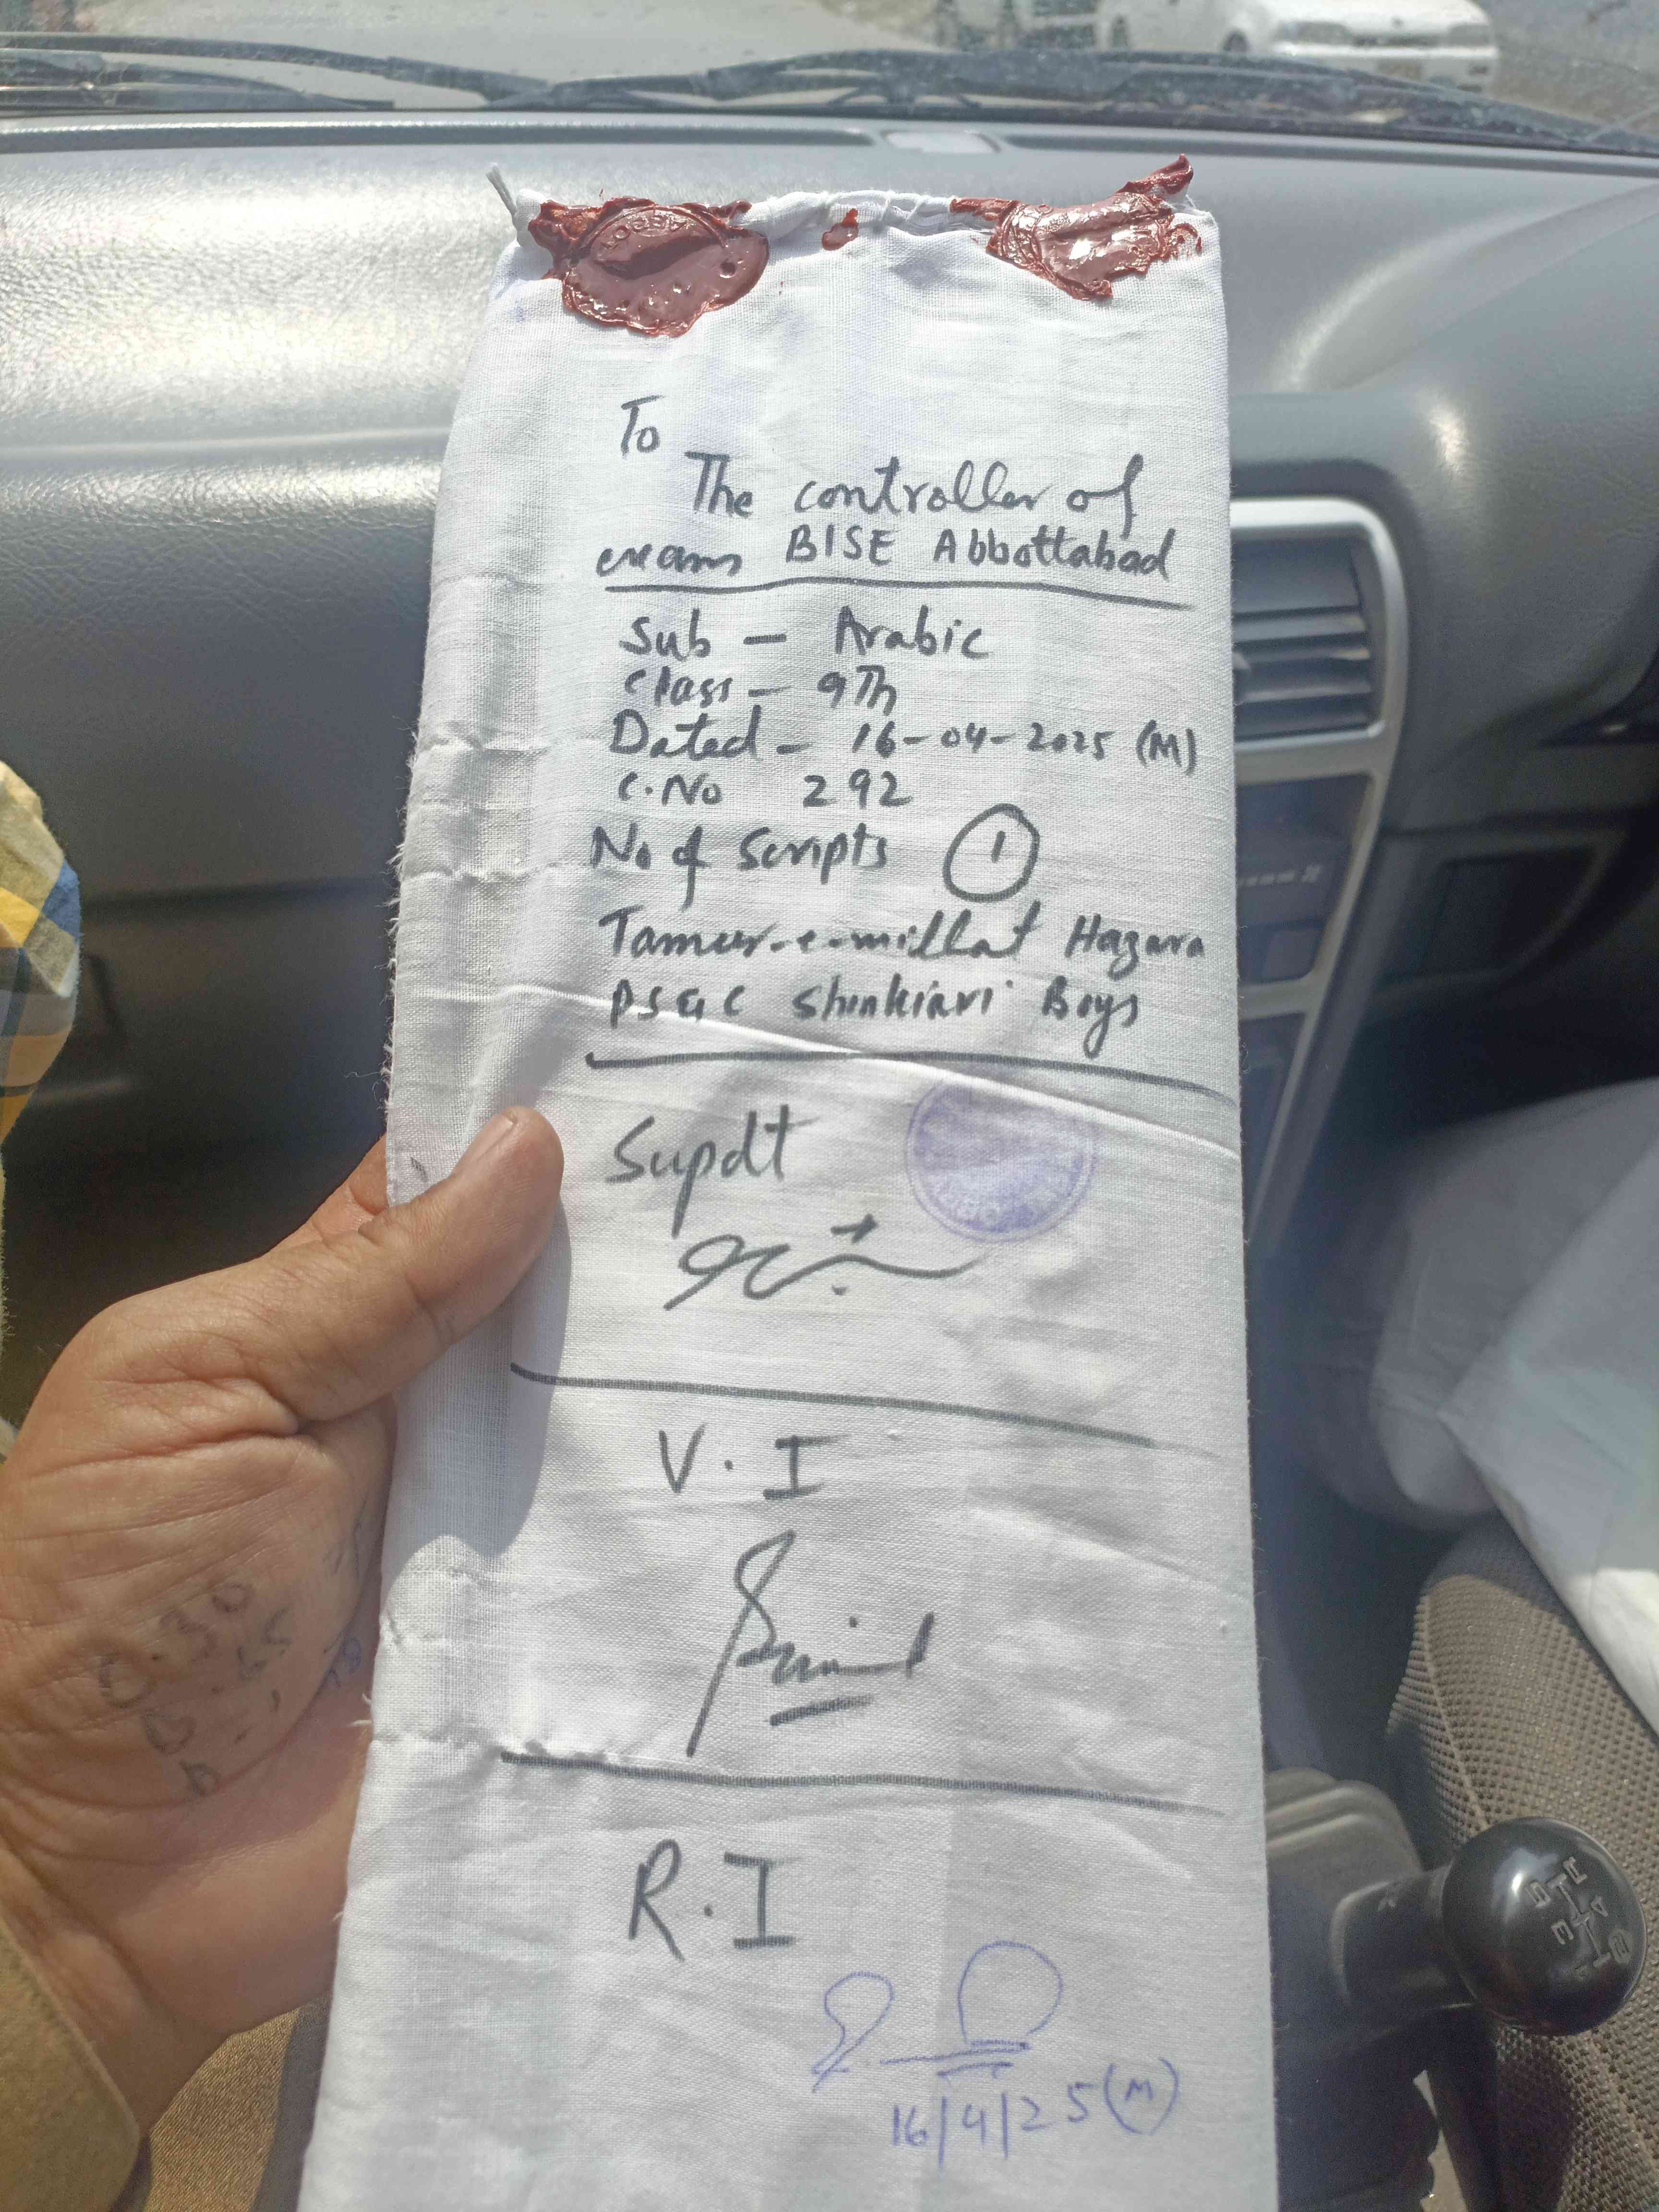 To
The controller of
exams BISE Abbottabad
Sub – Arabic
Class – 9Th
Dated – 16-04-2025 (M)
C.No 292
No of Scripts 1
Tameer-e-millat Hazara
PSGC Shinkiari Boys
Supdt
V.I
R.I
16/4/25(M)